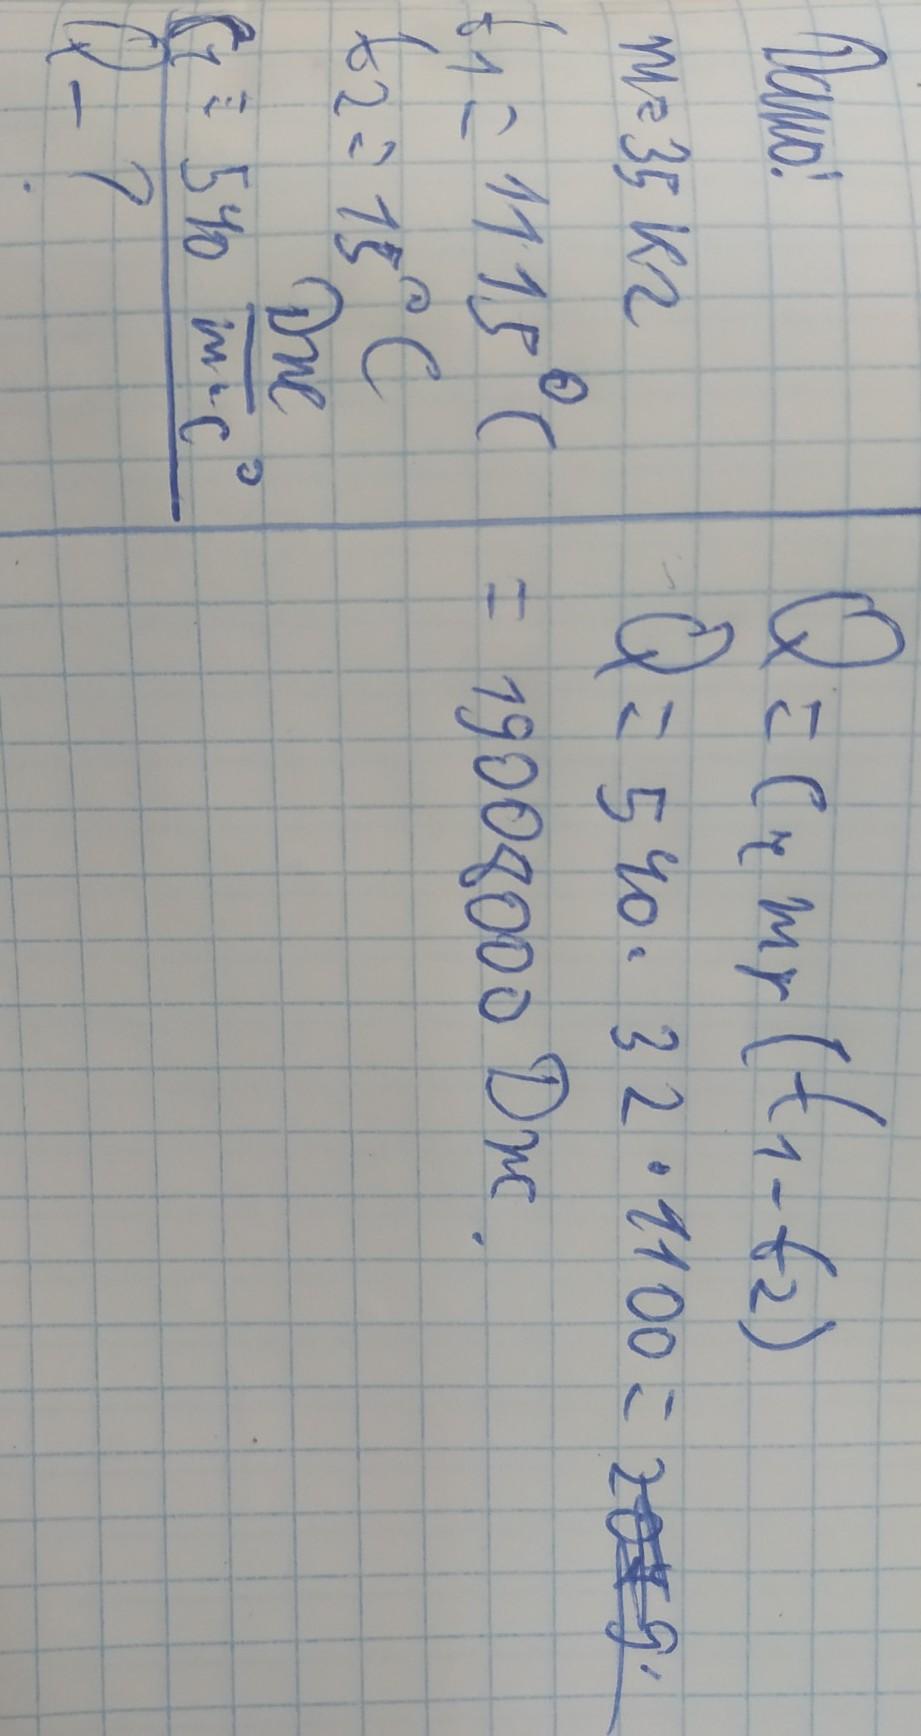 Дано:
m=35 кг
t1=1115°C
t2=15°C
Cч=540 Дж/m·c°
Q-?
Q=Cчmч(t1-t2)
Q=540·32·1100=
=19008000 Дж.